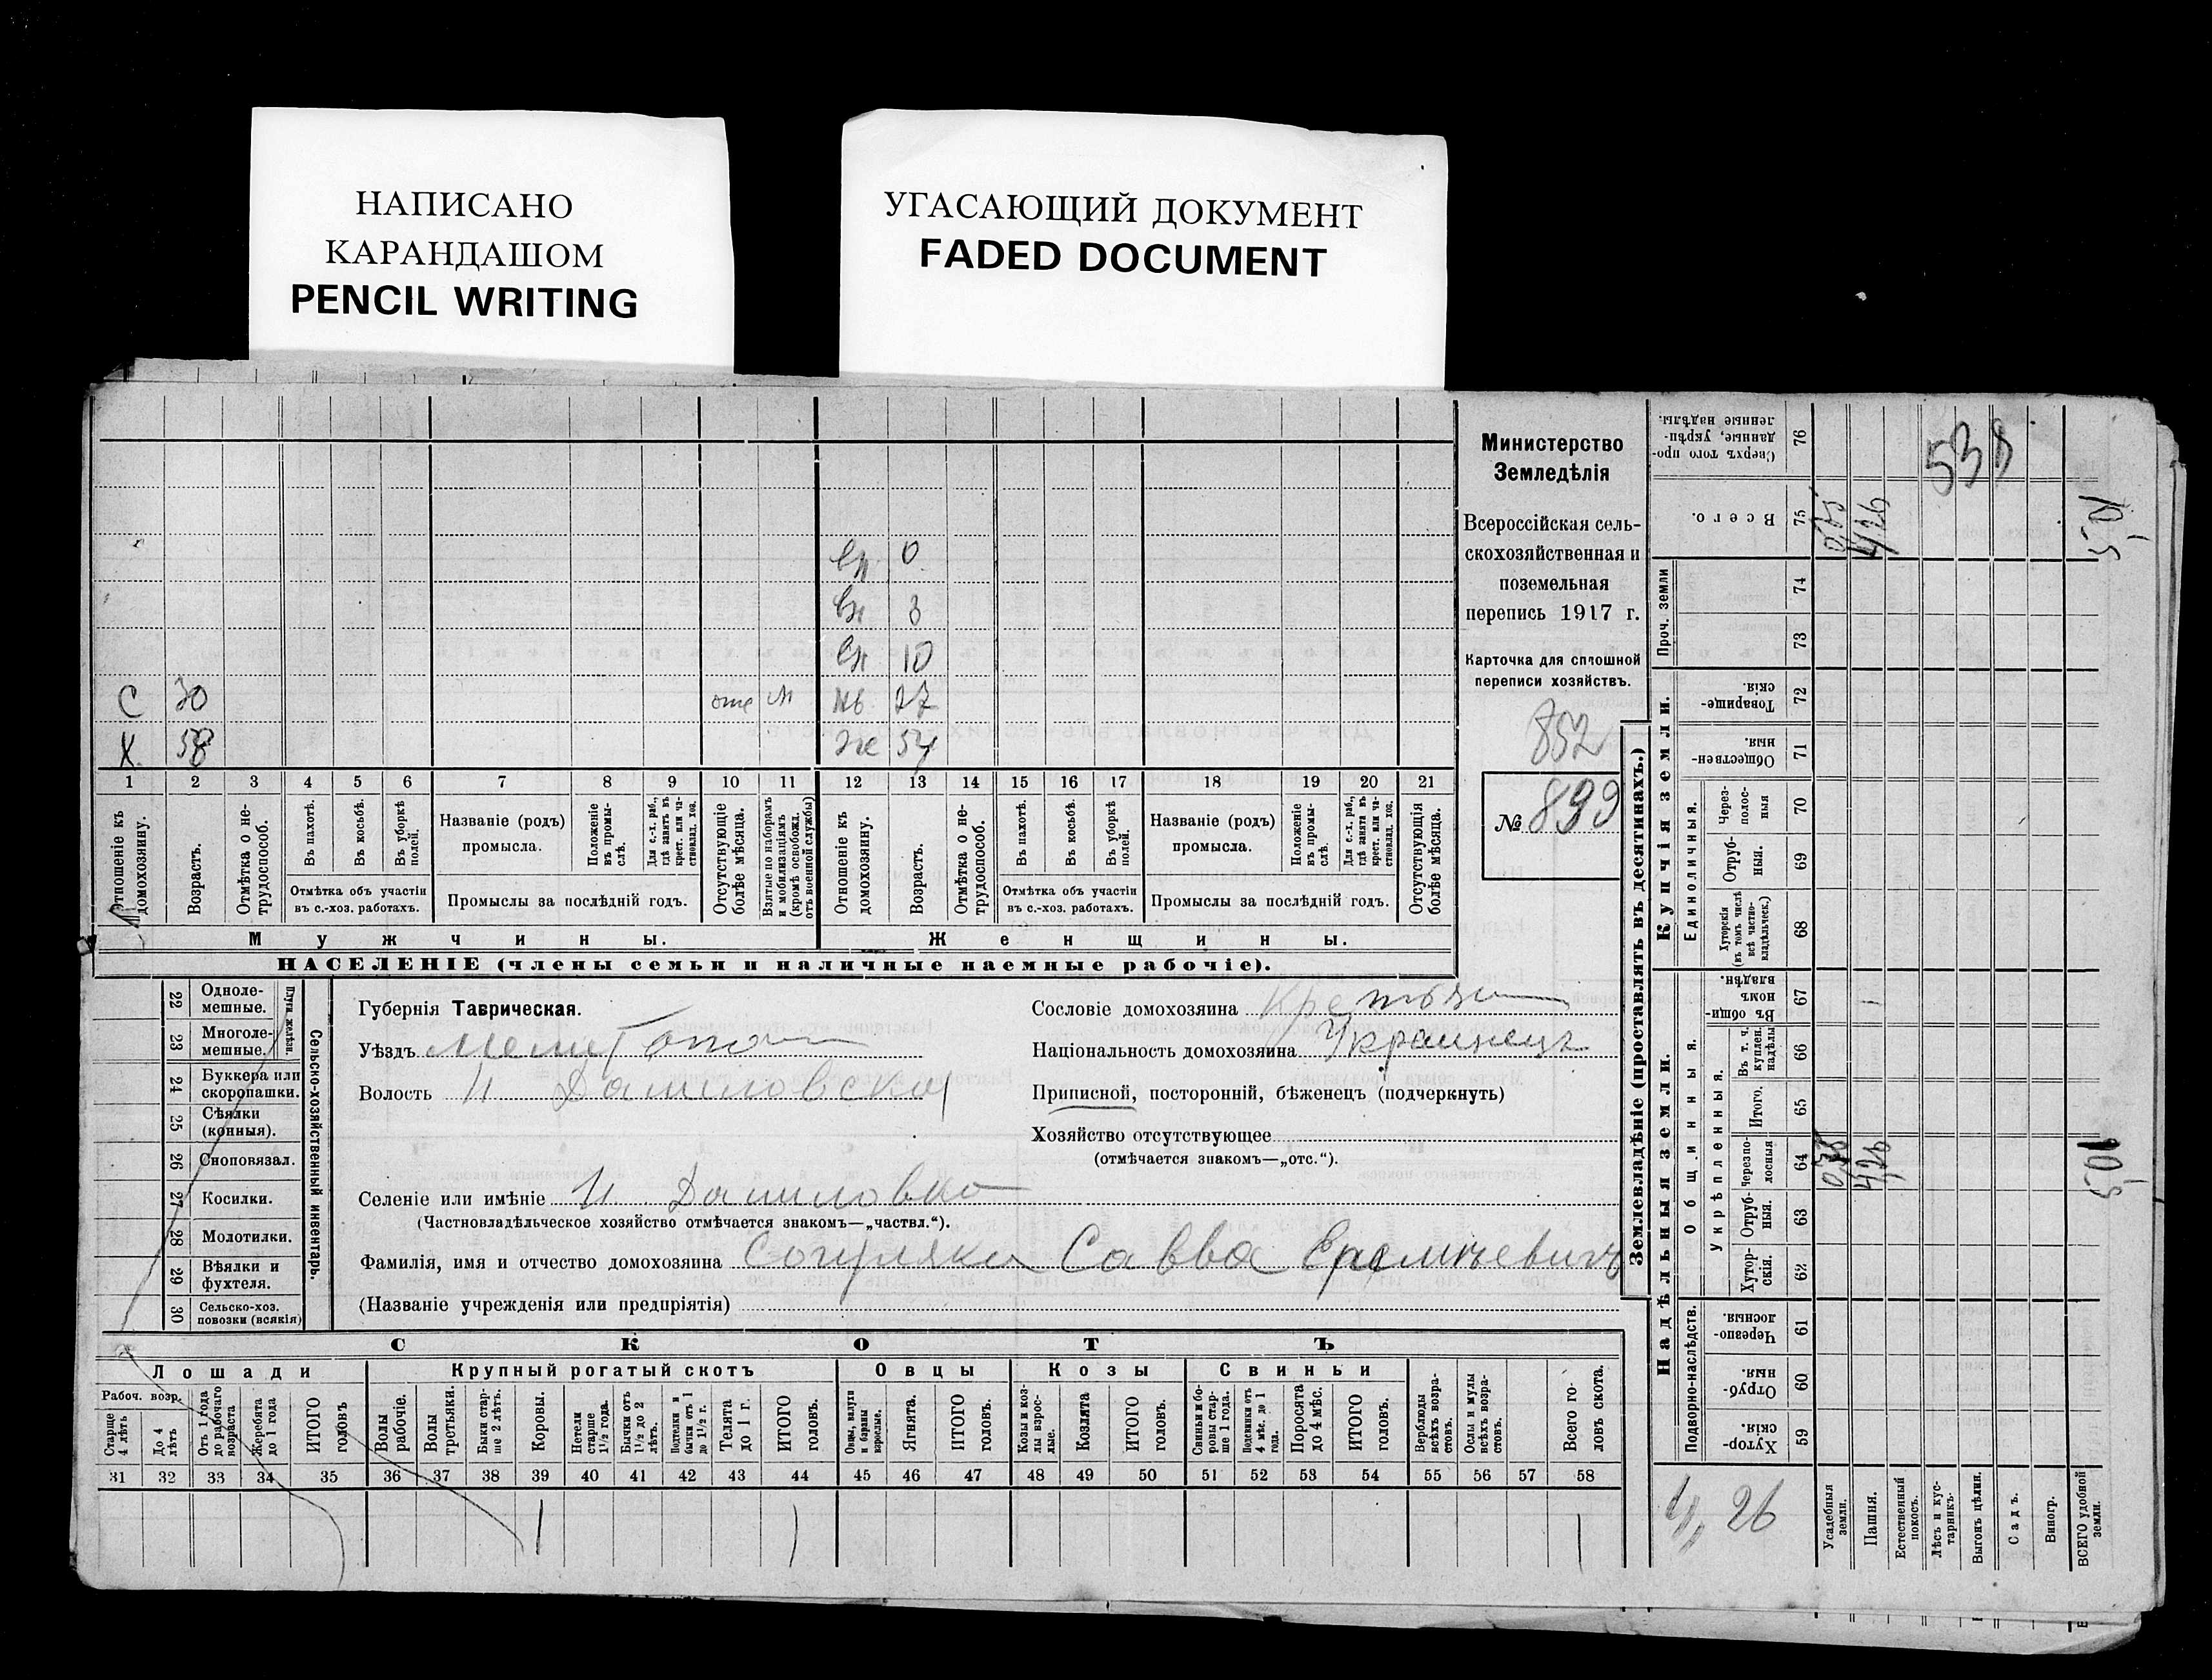 НАПИСАНО
КАРАНДАШОМ
PENCIL WRITING
УГАСАЮЩИЙ ДОКУМЕНТ
FADED DOCUMENT
Министерство
Земледѣлія
Всероссійская сель-
скохозяйственная и
поземельная
перепись 1917 г.
Карточка для сплошной
переписи хозяйствъ.
852
№ 899
вн 0
вн 3
вн 10
С 30 отс м нв 27
Х 58 же 54
1 2 3 4 5 6 7 8 9 10 11 12 13 14 15 16 17 18 19 20 21
Отношеніе къ домохозяину.
Возрастъ.
Отмѣтка о не-трудоспособ.
Въ пахотѣ.
Въ косьбѣ.
Въ уборкѣ полей.
Отмѣтка объ участіи
въ с.-хоз. работахъ.
Названіе (родъ)
промысла.
Положеніе въ промы-слѣ.
Для с.-х. раб., гдѣ занятъ въ крест. или ча-стновлад. хоз.
Промыслы за послѣдній годъ.
Отсутствующіе болѣе мѣсяца.
Взятые по наборамъ и мобилизаціямъ (кромѣ освобожд. отъ военной службы)
Отношеніе къ домохозяину.
Возрастъ.
Отмѣтка о не-трудоспособ.
Въ пахотѣ.
Въ косьбѣ.
Въ уборкѣ полей.
Отмѣтка объ участіи
въ с.-хоз. работахъ.
Названіе (родъ)
промысла.
Положеніе въ промы-слѣ.
Для с.-х. раб., гдѣ занята въ крест. или ча-стновлад. хоз.
Промыслы за послѣдній годъ.
Отсутствующія болѣе мѣсяца.
Мужчины.
Женщины.
НАСЕЛЕНІЕ (члены семьи и наличные наемные рабочіе).
22 Одноле-мешные.
23 Многоле-мешные.
Плуги желѣзн.
24 Буккера или скоропашки.
25 Сѣялки (конныя).
26 Сноповязал.
27 Косилки.
28 Молотилки.
29 Вѣялки и фухтеля.
30 Сельско-хоз. повозки (всякія)
Сельско-хозяйственный инвентарь.
Губернія Таврическая.
Уѣздъ Мелитопо
Волость Н Даниловская
Селеніе или имѣніе Н Даниловка
(Частновладѣльческое хозяйство отмѣчается знакомъ—„частвл.“).
Фамилія, имя и отчество домохозяина Савва
(Названіе учрежденія или предпріятія)
Сословіе домохозяина Крестьян
Національность домохозяина Украинецъ
Приписной, посторонній, бѣженецъ (подчеркнуть)
Хозяйство отсутствующее
(отмѣчается знакомъ—„отс.“).
СКОТЪ
Лошади
Крупный рогатый скотъ
Овцы
Козы
Свиньи
Рабоч. возр.
Старше 4 лѣтъ
До 4 лѣтъ
Отъ 1 года до рабочаго возраста
Жеребята до 1 года
ИТОГО головъ
Волы рабочіе.
Волы третьяки.
Быки стар-ше 2 лѣтъ.
Коровы.
Нетели старше 1½ года.
Бычки отъ 1½ до 2 лѣтъ.
Подтелки и бычки отъ 1 до 1½ г.
Телята до 1 г.
ИТОГО головъ.
Овцы, валухи и бараны взрослые.
Ягнята.
ИТОГО головъ.
Козы и коз-лы взрос-лые.
Козлята
ИТОГО головъ.
Свиньи и бо-ровы стар-ше 1 года.
Подсвинки отъ 4 мѣс. до 1 года.
Поросята до 4 мѣс.
ИТОГО головъ.
Верблюды всѣхъ возра-стовъ.
Ослы и мулы всѣхъ возра-стовъ.
Всего го-ловъ скота.
31 32 33 34 35 36 37 38 39 40 41 42 43 44 45 46 47 48 49 50 51 52 53 54 55 56 57 58
1 1 1
Землевладѣніе (проставлять въ десятинахъ.)
Надѣльныя земли.
Купчія земли.
Проч. земли
Подворно-наслѣдств.
Общинныя.
Укрѣпленныя.
Единоличныя.
Сверхъ того про-данные, укрѣп-ленные надѣлы. 76
Всего. 75 4,26 5,01
74
73
Товарище-скія. 72
Обществен-ныя 71
Через-полос-ныя 70
Отруб-ныя. 69
Хуторскія (въ томъ числѣ всѣ частно-владѣльческ.) 68
Въ общин-номъ владѣн. 67
Въ т. ч. куплен. надѣлы 66
Итого. 65
Черезпо-лосныя 64 4,26 5,01
Отруб-ныя. 63
Хутор-скія. 62
Черезпо-лосныя. 61
Отруб-ныя. 60
Хутор-скія. 59
538
4,26
Усадебныя земли.
Пашня.
Естественный покосъ.
Лѣсъ и кус-тарникъ.
Выгонъ цѣлин.
Садъ.
Виногр.
ВСЕГО удобной земли.